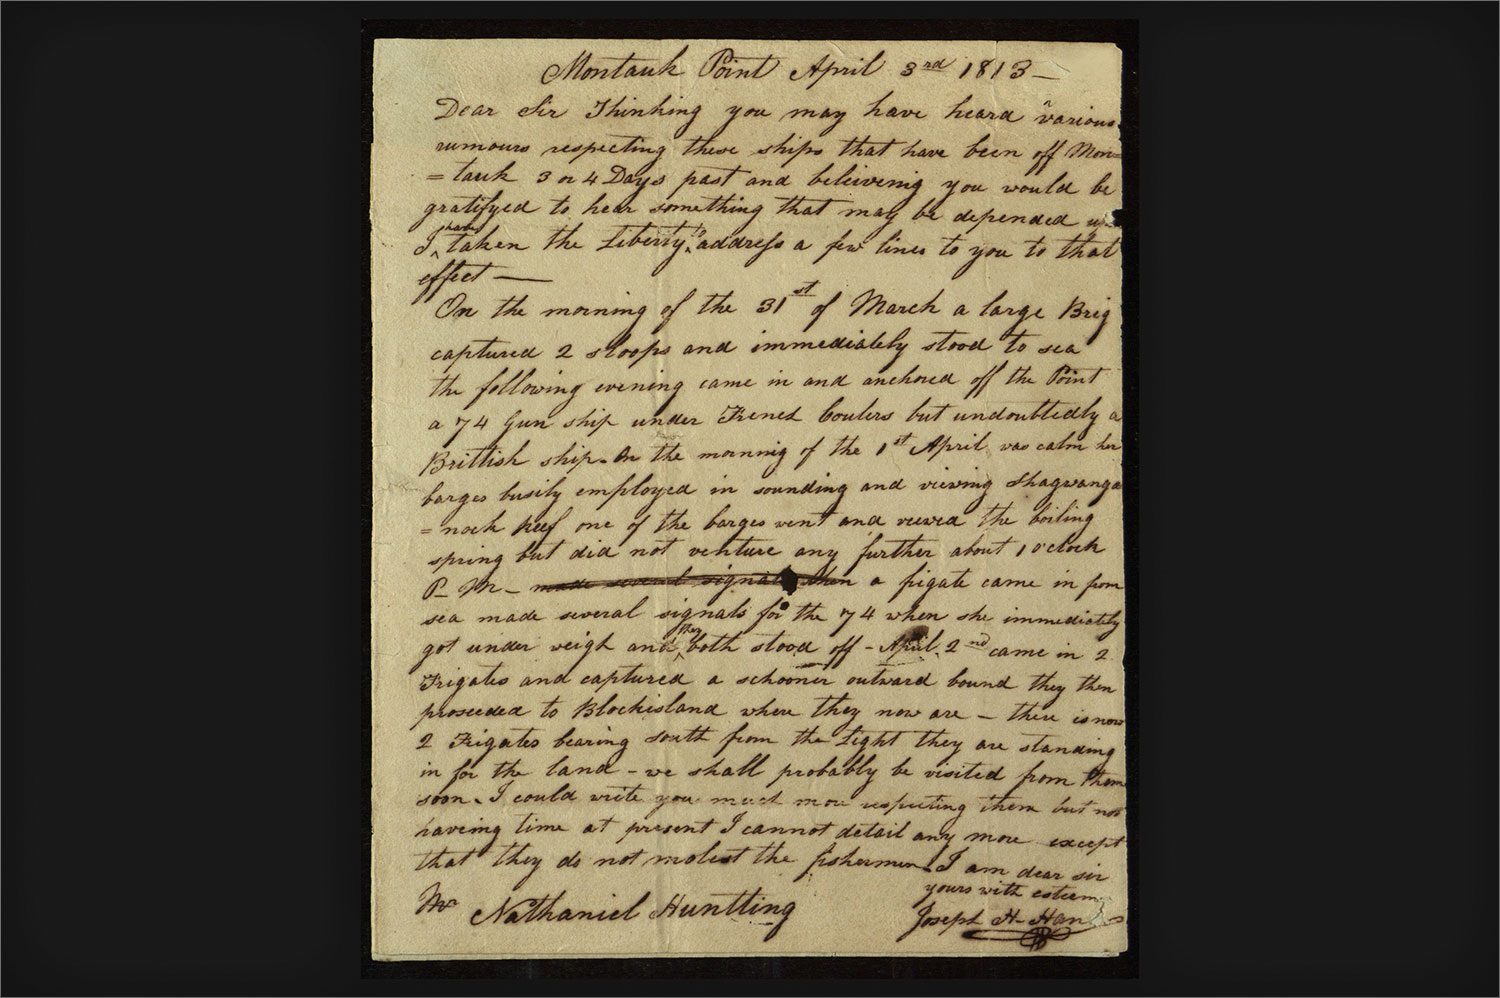 Montauk Point April 3rd 1813 —
Dear Sir Thinking you may have heard various
rumours respecting these ships that have been off Mon=
=tauk 3 or 4 Days past and beleiveing you would be
gratifyed to hear something that may be depended
I have taken the Liberty to address a few lines to you to that
effect —
On the morning of the 31st of March a large Brig
captured 2 sloops and immediately stood to sea
the following evening came in and anchored off the Point
a 74 Gun ship under French Coulers but undoubtedly a
Brittish ship. On the morning of the 1st April was calm her
barges busily employed in sounding and viewing Shagwanga
=nock Reef one of the barges went and viewed the boiling
spring but did not venture any further about 1 oclock
P- M- made several signals when a frigate came in from
sea made several signals for the 74 when she immediately
got under weigh and they both stood off - April 2nd came in 2
Frigates and captured a schooner outward bound they then
proseeded to Blockisland where they now are - there is now
2 Frigates bearing south from the Light they are standing
in for the land - we shall probably be visited from them
soon. I could write you much more respecting them but not
haveing time at present I cannot detail any more except
that they do not molest the fishermen. I am dear sir
yours with esteem
Mr Nathaniel Huntting Joseph H- Han